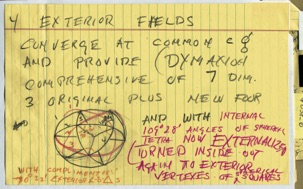 4 EXTERIOR FIELDS
CONVERGE AT COMMON C of G
AND PROVIDE (DYMAXION
COMPREHENSIVE OF 7 DIM.
3 ORIGINAL PLUS NEW FOUR
AND WITH INTERNAL
109°28' ANGLES OF SPHERICAL
TETRA NOW EXTERNALIZED
(TURNED INSIDE OUT
AGAIN TO EXTERIOR
VERTEXES OF SPHERICAL SQUARES
WITH COMPLIMENTS
70°32' EXTERIOR